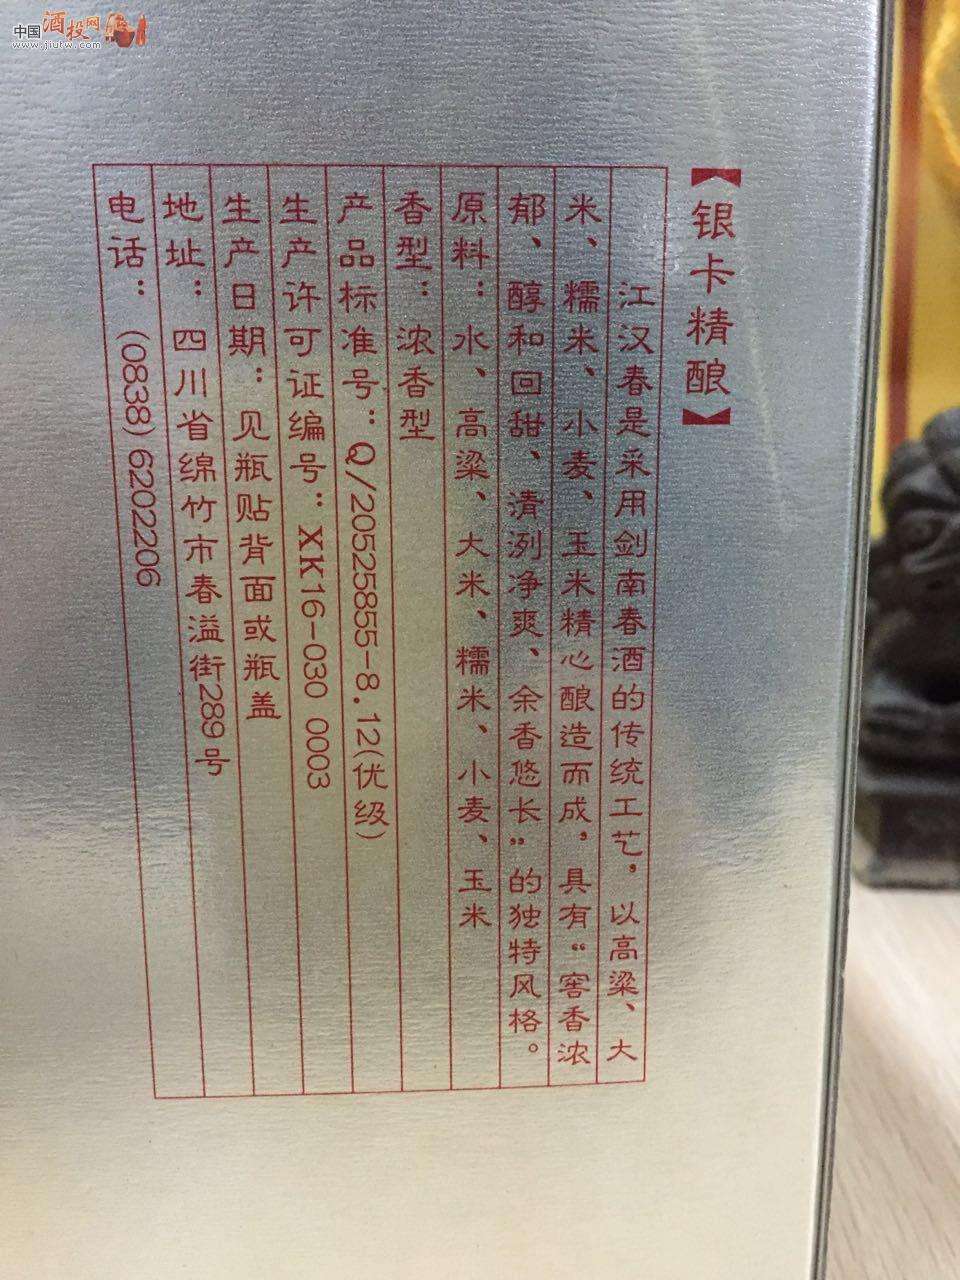 中国酒投网
www.jiutw.com
【银卡精酿】
江汉春是采用剑南春酒的传统工艺，以高粱、大
米、糯米、小麦、玉米精心酿造而成，具有“窖香浓
郁、醇和回甜、清洌净爽、余香悠长”的独特风格。
原料：水、高粱、大米、糯米、小麦、玉米
香型：浓香型
产品标准号：Q/20525855-8.12(优级)
生产许可证编号：XK16-030 0003
生产日期：见瓶贴背面或瓶盖
地址：四川省绵竹市春溢街289号
电话：(0838)6202206